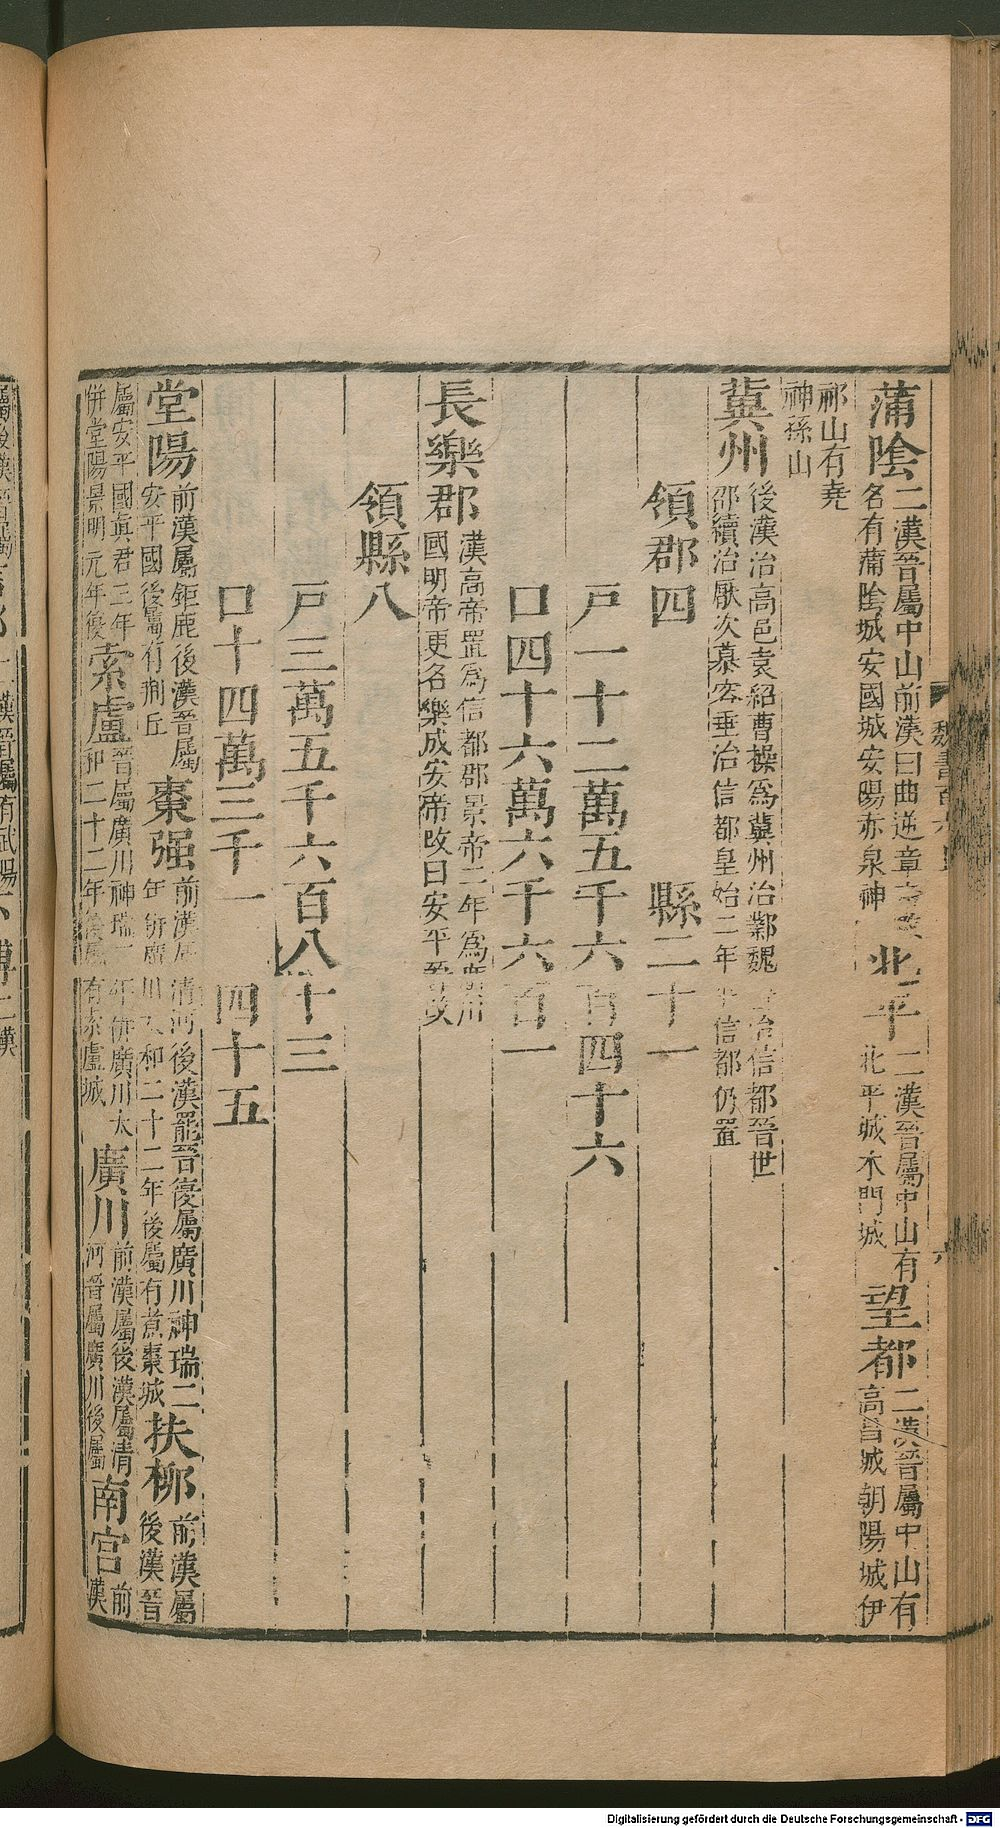 蒲陰二漢晉屬中山前漢曰曲逆章帝改名有蒲陰城安國城安陽亦泉神北平二漢晉屬中山有北平城木門城望都二漢晉屬中山有高昌城朝陽城伊
祁山有堯神孫山
冀州後漢治高邑袁紹曹操爲冀州治鄴魏治信都晉世邵續治厭次慕容垂治信都皇始二年平信都仍置
領郡四 縣二十一
戸一十二萬五千六百四十六
口四十六萬六千六百一
長樂郡漢高帝置爲信都郡景帝二年爲廣川國明帝更名樂成安帝改曰安平晉改
領縣八
戸三萬五千六百八十三
口十四萬三千一 四十五
堂陽前漢屬鉅鹿後漢晉屬安平國後屬有荆丘棗强前漢屬清河後漢罷晉復屬廣川神瑞二年併廣川太和二十二年後屬有煮棗城扶柳前漢屬後漢晉
屬安平國眞君三年併堂陽景明元年復索盧晉屬廣川神瑞二年併廣川太和二十二年後屬有索盧城廣川前漢屬後漢屬清河晉屬廣川後屬南宮前漢
魏書百六上
六
Digitalisierung gefördert durch die Deutsche Forschungsgemeinschaft - DFG